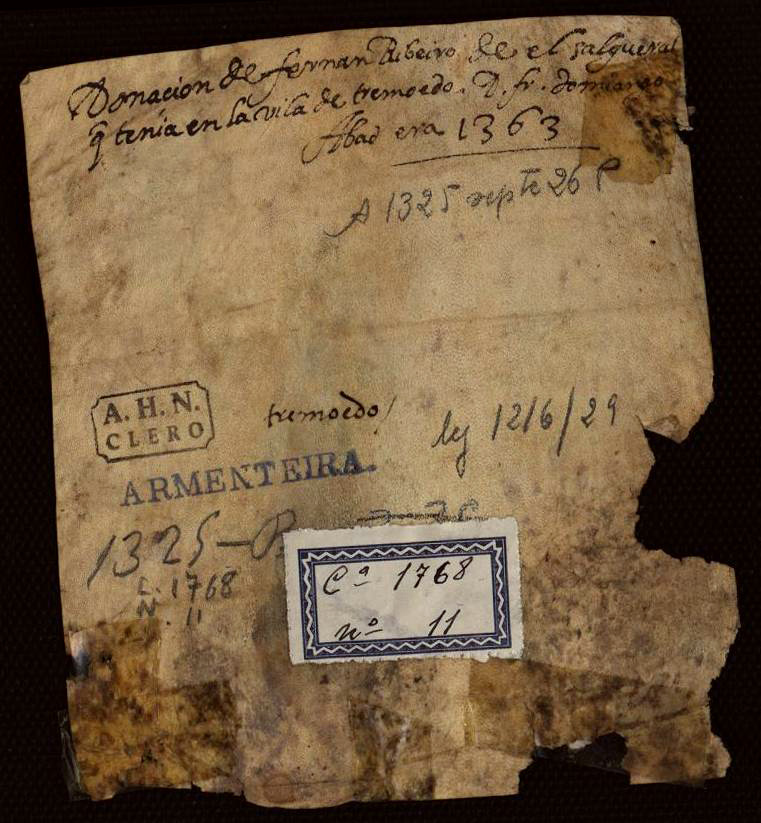 Donacion de fernan Ribeiro de el salgueral
q tenia en la vila de tremoedo. D. fr. domingo
Abad era 1363
A 1325 septe 26 P
A. H. N.
CLERO
tremoedo
leg 1216/29
ARMENTEIRA.
1325-
L. 1768
N. 11
Cª 1768
nº 11